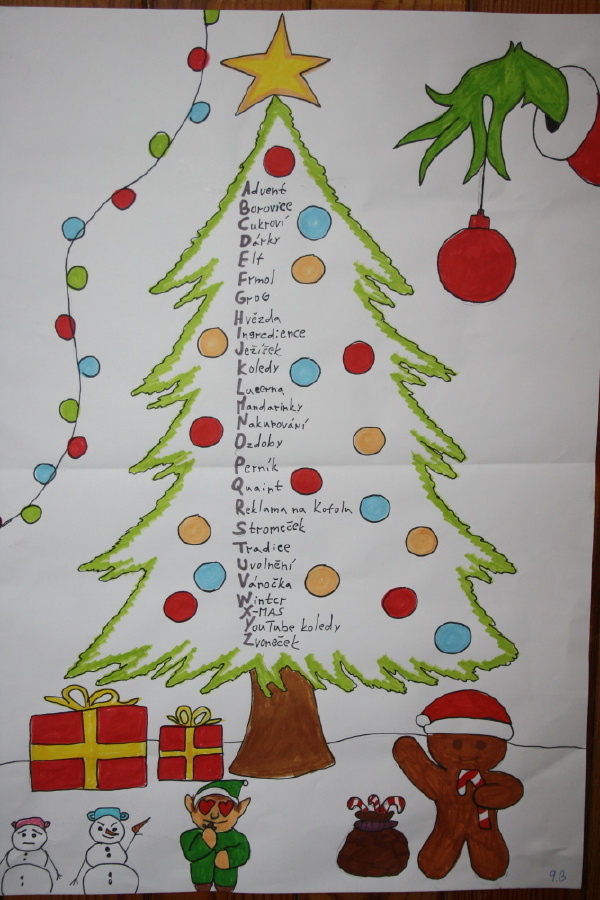 Advent
Borovice
Cukroví
Dárky
Elf
Frmol
Grog
Hvězda
Ingredience
Ježíšek
Koledy
Lucerna
Mandarinky
Nakupování
Ozdoby
Perník
Quaint
Reklama na Kofolu
Stromeček
Tradice
Uvolnění
Vánočka
Winter
X-MAS
YouTube koledy
Zvoneček
9.B